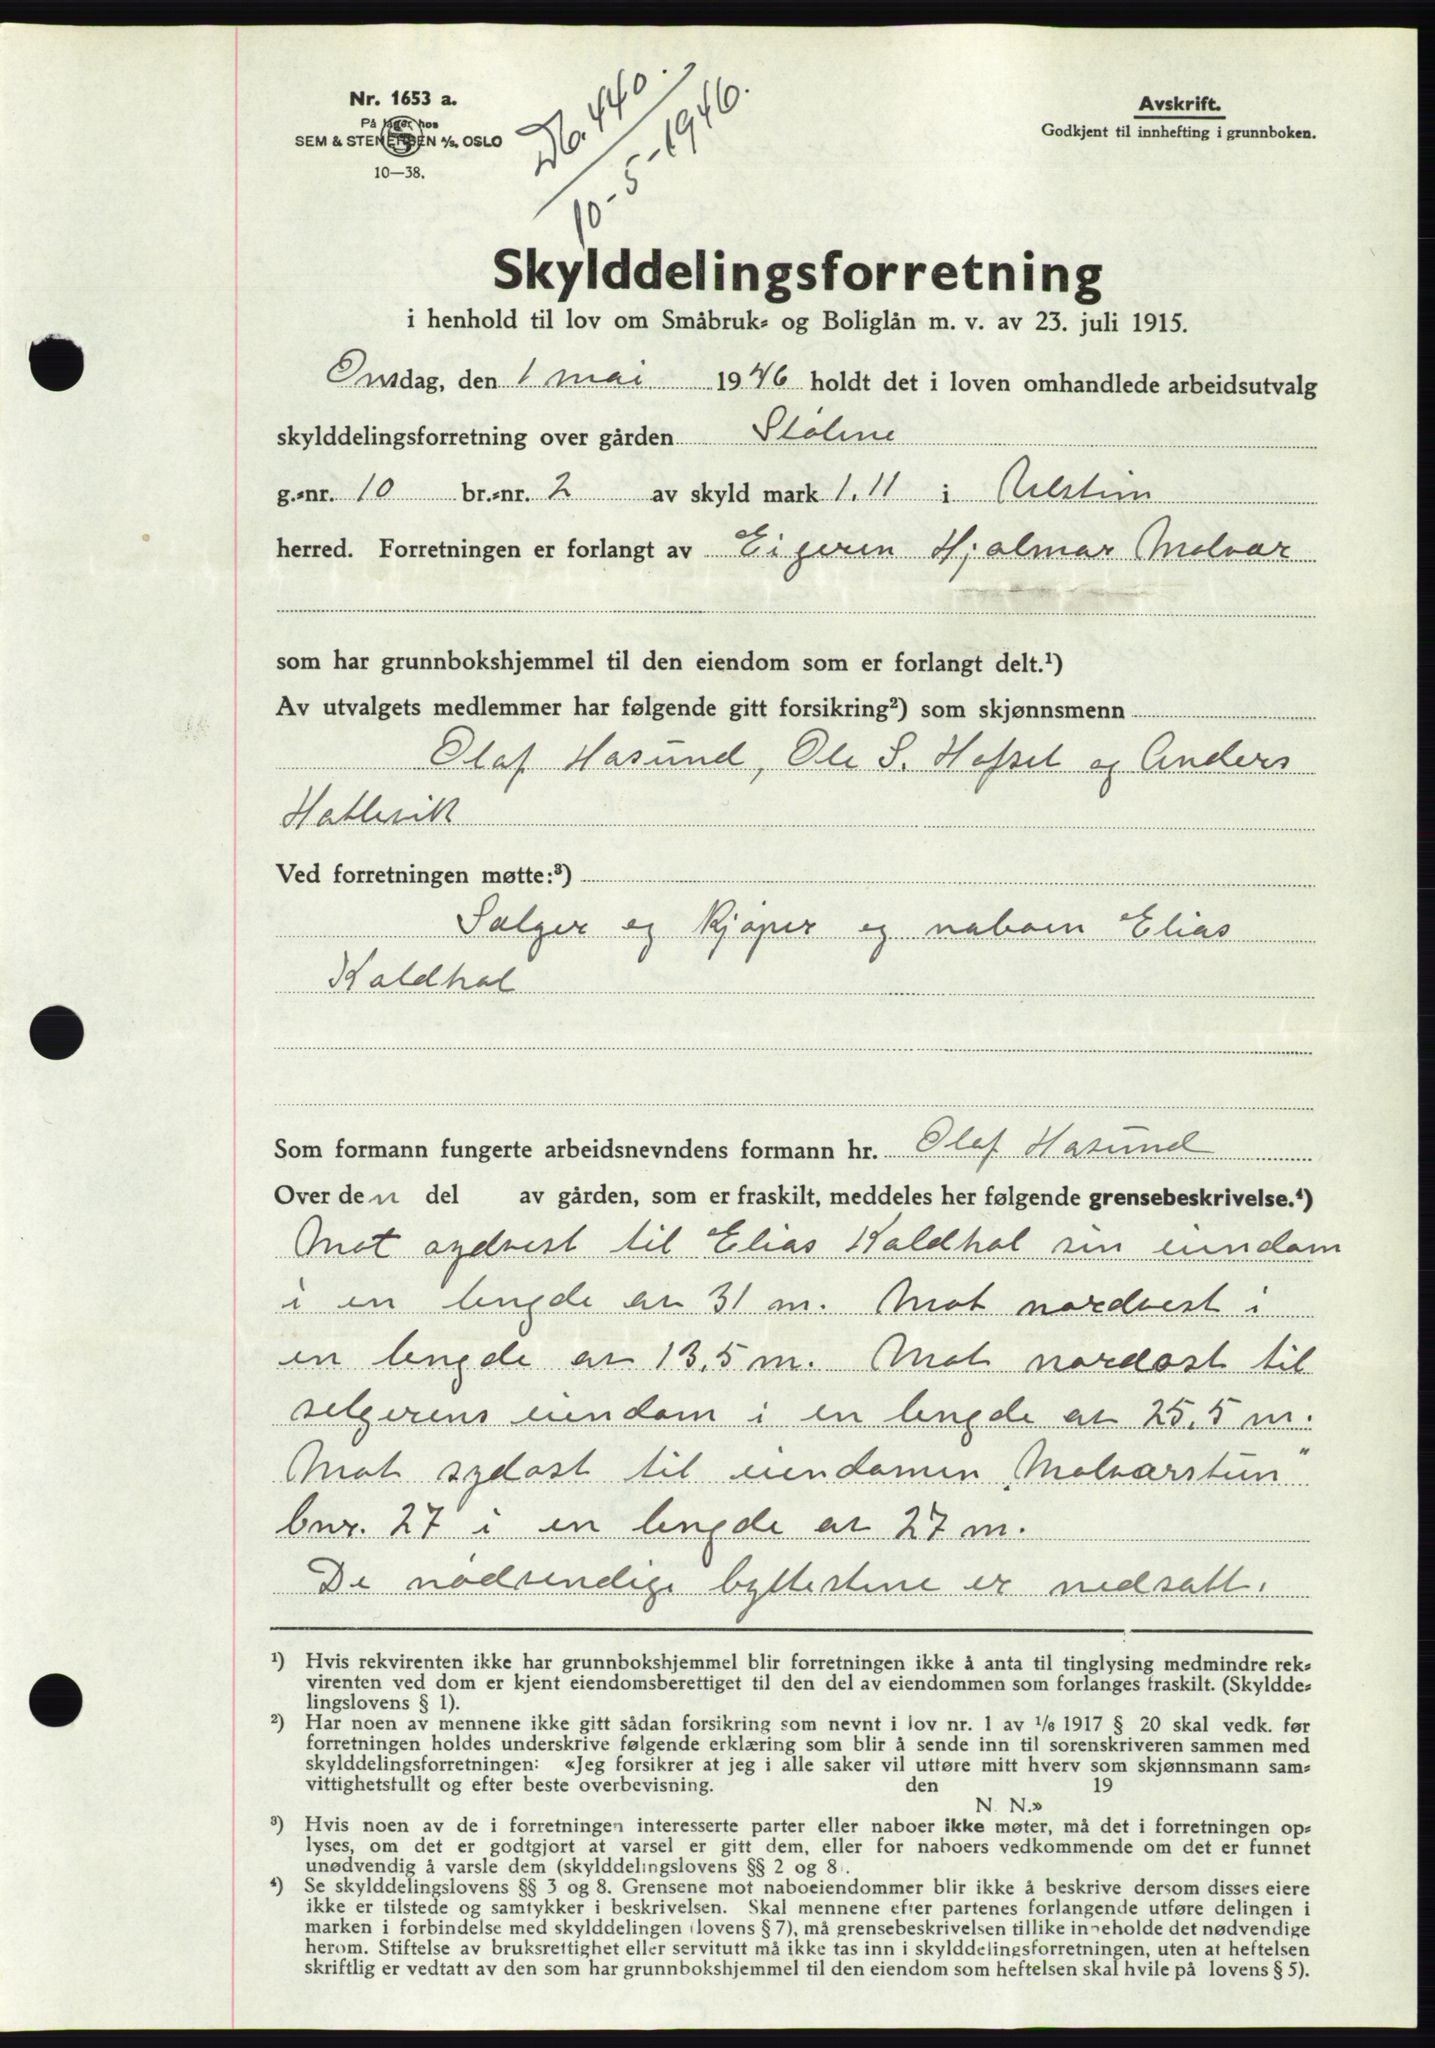 Nr. 1653 a.
På lager hos
SEM & STENERSEN A/S. OSLO
10—38.
Db. 440.
10-5-1946.
Avskrift.
Godkjent til innhefting i grunnboken.
Skylddelingsforretning
i henhold til lov om Småbruk- og Boliglån m. v. av 23. juli 1915.
Onsdag, den 1 mai 1946 holdt det i loven omhandlede arbeidsutvalg
skylddelingsforretning over gården Stölene
g.-nr. 10 br.-nr. 2 av skyld mark 1,11 i Ulstein
herred. Forretningen er forlangt av Eigeren Hjalmar Molvær
som har grunnbokshjemmel til den eiendom som er forlangt delt.¹)
Av utvalgets medlemmer har følgende gitt forsikring²) som skjønnsmenn
Olaf Hasund, Ole S. Hofset og Anders
Hatlevik
Ved forretningen møtte:³)
Selger og kjøper og naboen Elias
Kaldhol
Som formann fungerte arbeidsnevndens formann hr. Olaf Hasund
Over den del av gården, som er fraskilt, meddeles her følgende grensebeskrivelse.⁴)
Mot sydvest til Elias Kaldhol sin eiendom
i en lengde av 31 m. Mot nordvest i
en lengde av 13,5 m. Mot nordøst til
selgerens eiendom i en lengde av 25,5 m.
Mot sydøst til eiendomen „Molværstun"
bnr. 27 i en lengde av 27 m.
De nødvendige byttestene er nedsatt.
¹) Hvis rekvirenten ikke har grunnbokshjemmel blir forretningen ikke å anta til tinglysing medmindre rek-
virenten ved dom er kjent eiendomsberettiget til den del av eiendommen som forlanges fraskilt. (Skyldde-
lingslovens § 1).
²) Har noen av mennene ikke gitt sådan forsikring som nevnt i lov nr. 1 av ¹/₆ 1917 § 20 skal vedk. før
forretningen holdes underskrive følgende erklæring som blir å sende inn til sorenskriveren sammen med
skylddelingsforretningen: «Jeg forsikrer at jeg i alle saker vil utføre mitt hverv som skjønnsmann sam-
vittighetsfullt og efter beste overbevisning. den 19
N. N.»
³) Hvis noen av de i forretningen interesserte parter eller naboer ikke møter, må det i forretningen op-
lyses, om det er godtgjort at varsel er gitt dem, eller for naboers vedkommende om det er funnet
unødvendig å varsle dem (skylddelingslovens §§ 2 og 8).
⁴) Se skylddelingslovens §§ 3 og 8. Grensene mot naboeiendommer blir ikke å beskrive dersom disses eiere
ikke er tilstede og samtykker i beskrivelsen. Skal mennene efter partenes forlangende utføre delingen i
marken i forbindelse med skylddelingen (lovens § 7), må grensebeskrivelsen tillike inneholde det nødvendige
herom. Stiftelse av bruksrettighet eller servitutt må ikke tas inn i skylddelingsforretningen, uten at heftelsen
skriftlig er vedtatt av den som har grunnbokshjemmel til den eiendom som heftelsen skal hvile på lovens § 5).